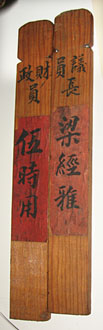 議員
長
梁經雅
財政
員
伍時用